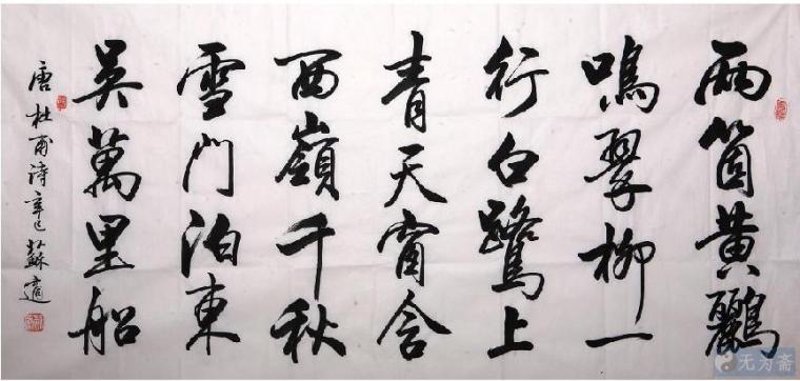 兩箇黄鸝
鳴翠柳一
行白鷺上
青天窗含
西嶺千秋
雪門泊東
吳萬里船
唐杜甫詩辛巳蘇適
无为斋